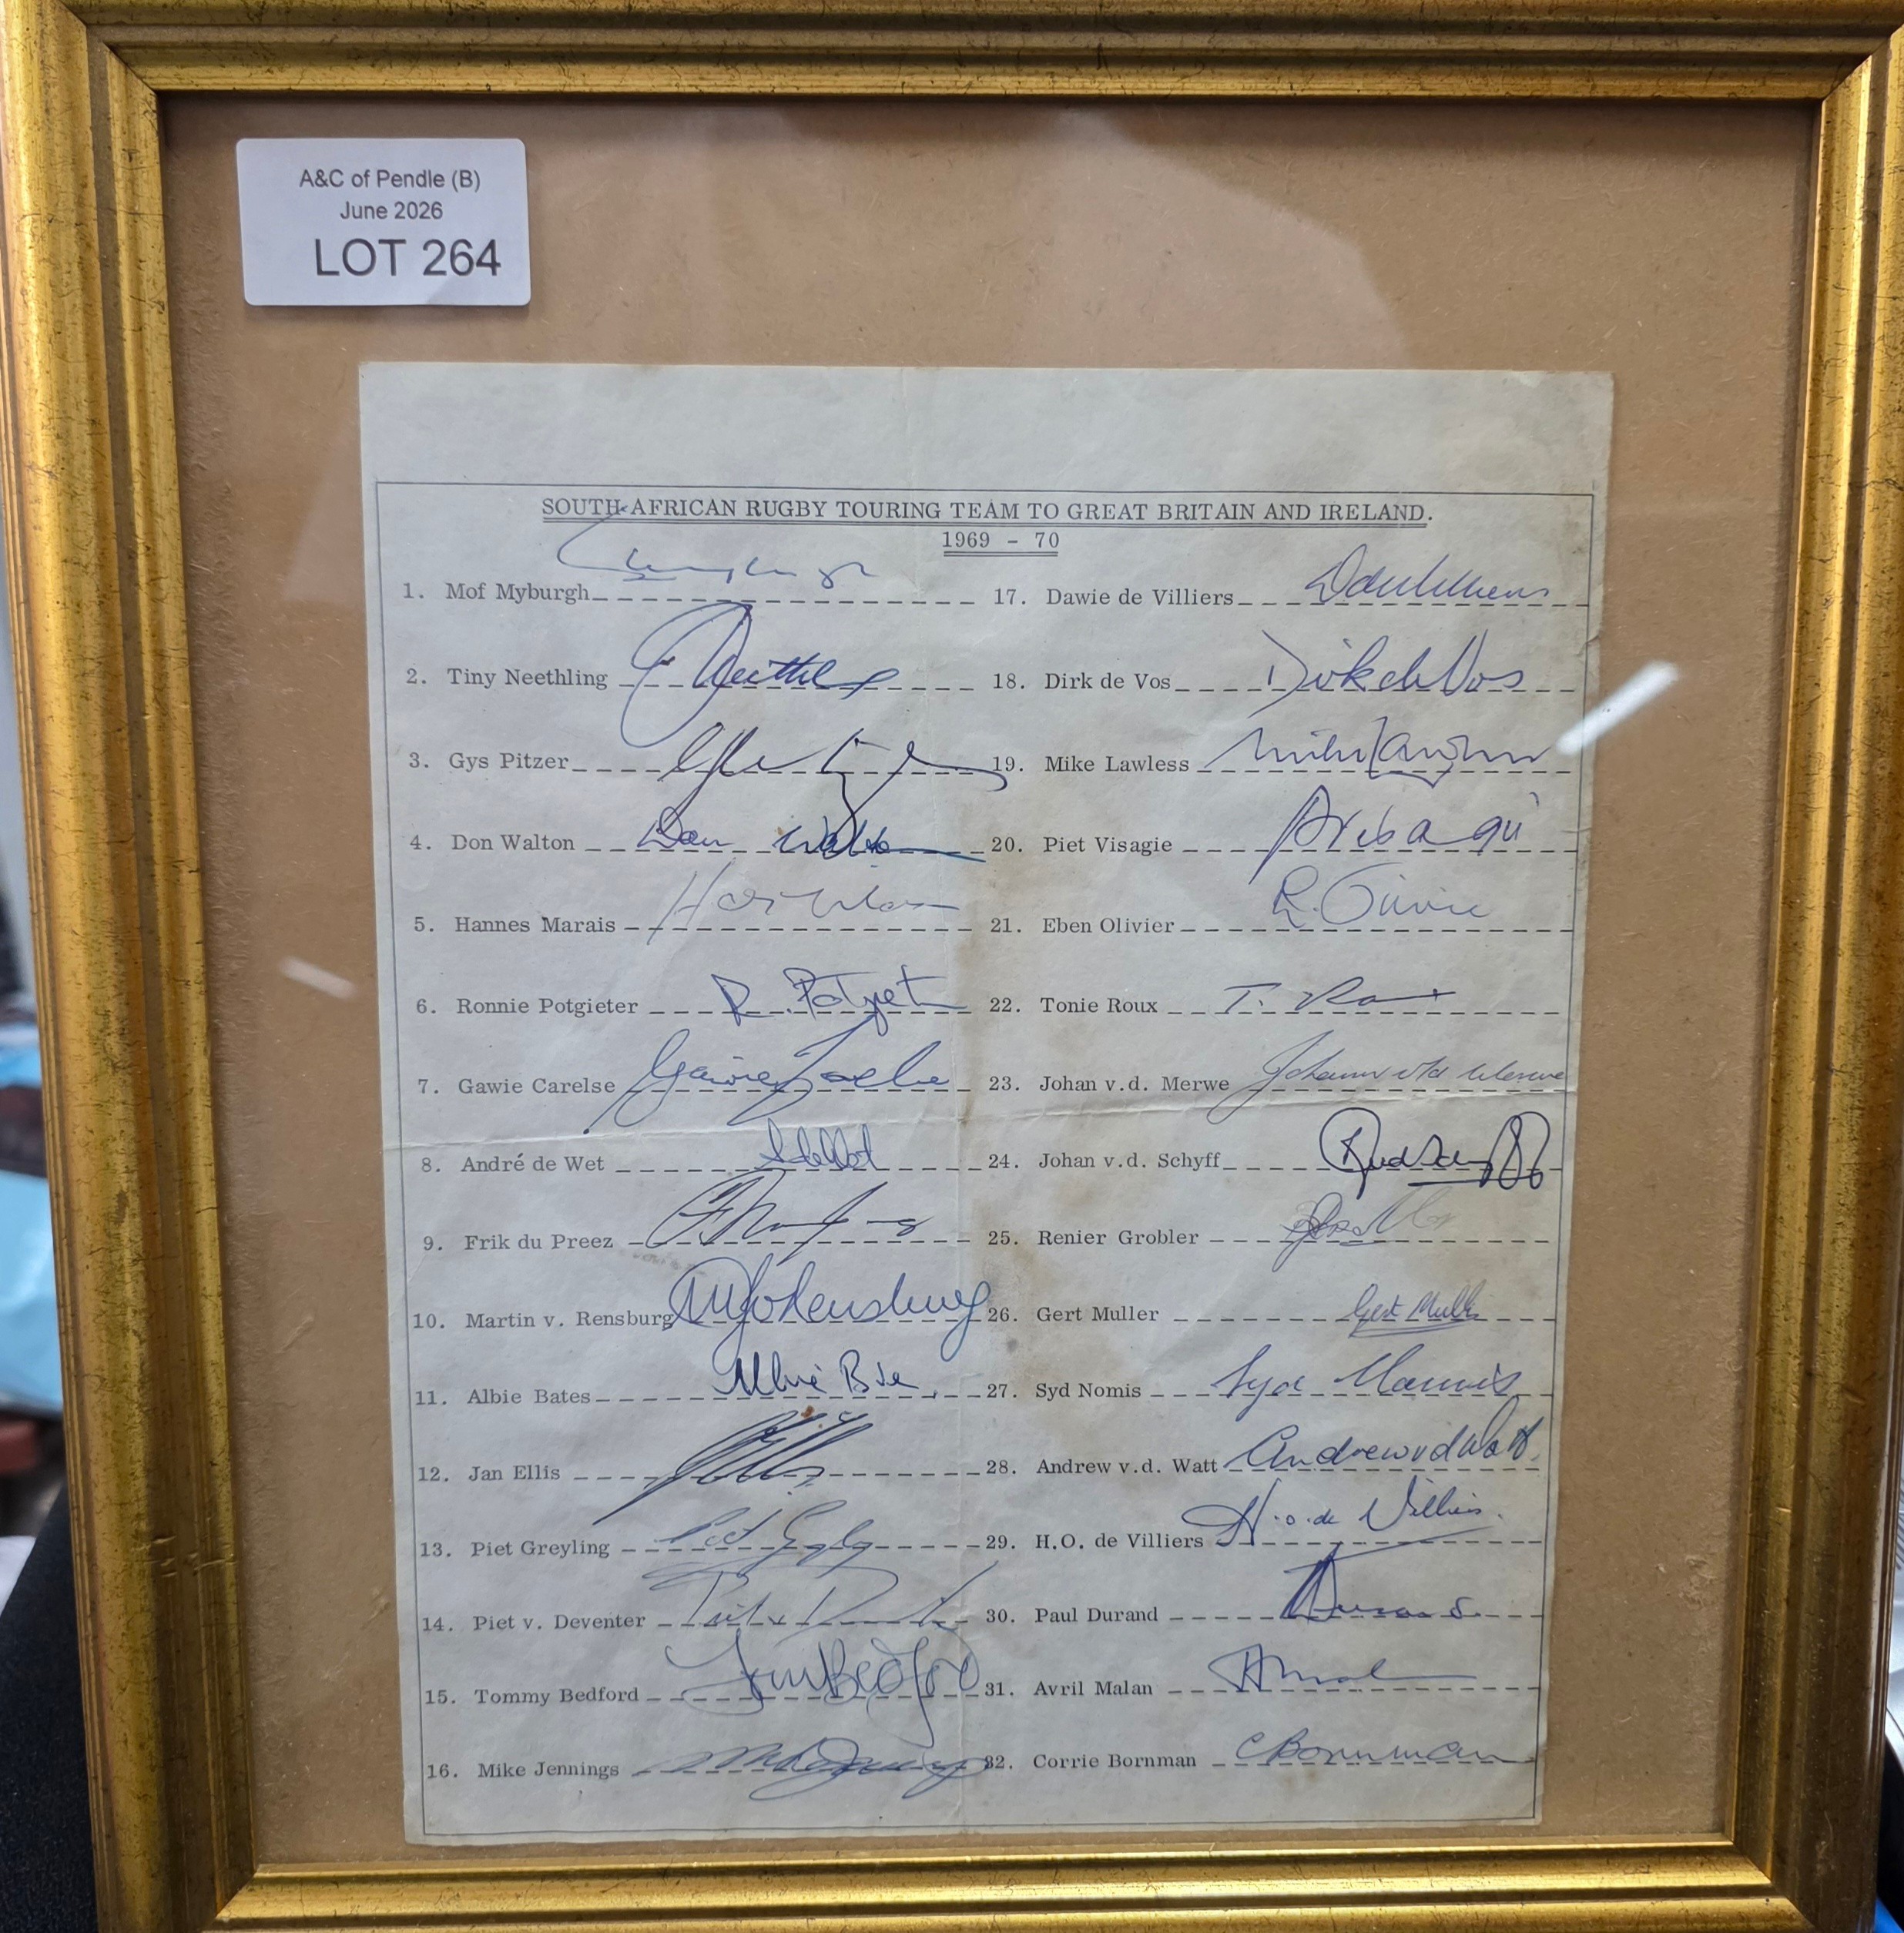 A&C of Pendle (B)
June 2026
LOT 264
SOUTH-AFRICAN RUGBY TOURING TEAM TO GREAT BRITAIN AND IRELAND.
1969 - 70
1. Mof Myburgh
2. Tiny Neethling
3. Gys Pitzer
4. Don Walton Don Walton
5. Hannes Marais
6. Ronnie Potgieter R. Potgieter
7. Gawie Carelse Gawie Carelse
8. André de Wet
9. Frik du Preez
10. Martin v. Rensburg
11. Albie Bates Albie Bates
12. Jan Ellis
13. Piet Greyling
14. Piet v. Deventer
15. Tommy Bedford Tom Bedford
16. Mike Jennings
17. Dawie de Villiers
18. Dirk de Vos Dirk de Vos
19. Mike Lawless
20. Piet Visagie
21. Eben Olivier E. Olivier
22. Tonie Roux T. Roux
23. Johan v.d. Merwe
24. Johan v.d. Schyff
25. Renier Grobler
26. Gert Muller Gert Muller
27. Syd Nomis Syd Nomis
28. Andrew v.d. Watt Andrew vd Watt
29. H.O. de Villiers H.O. de Villiers
30. Paul Durand
31. Avril Malan
32. Corrie Bornman C Bornman